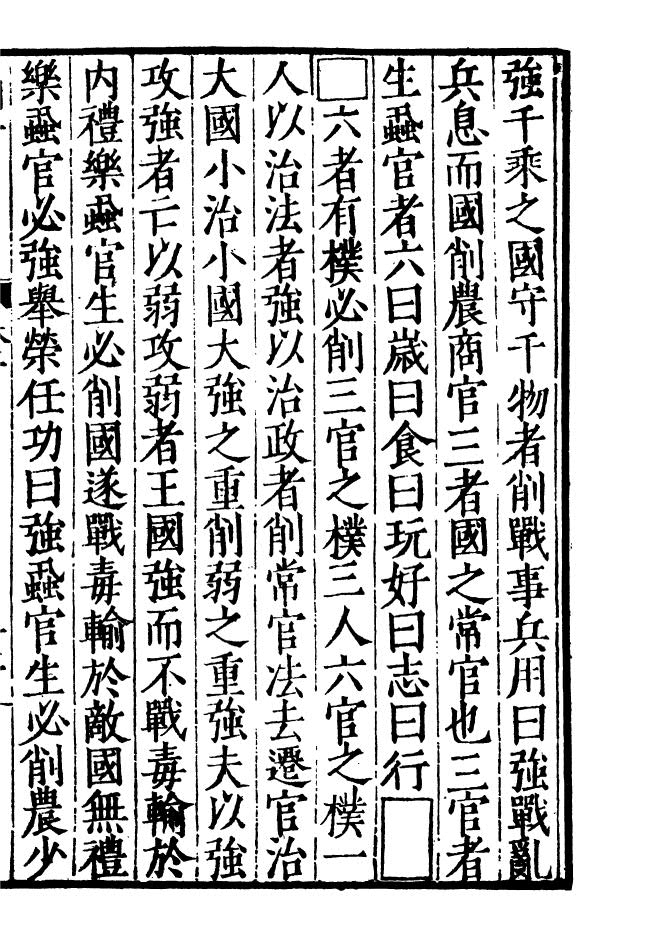 強千乘之國守千物者削戰事兵用曰強戰亂
兵息而國削農商官三者國之常官也三官者
生蝨官者六曰歲曰食曰玩好曰志曰行□
□六者有樸必削三官之樸三人六官之樸一
人以治法者強以治政者削常官法去遷官治
大國小治小國大強之重削弱之重強夫以強
攻強者亡以弱攻弱者王國強而不戰毒輸於
內禮樂蝨官生必削國遂戰毒輸於敵國無禮
樂蝨官必強舉榮任功曰強蝨官生必削農少